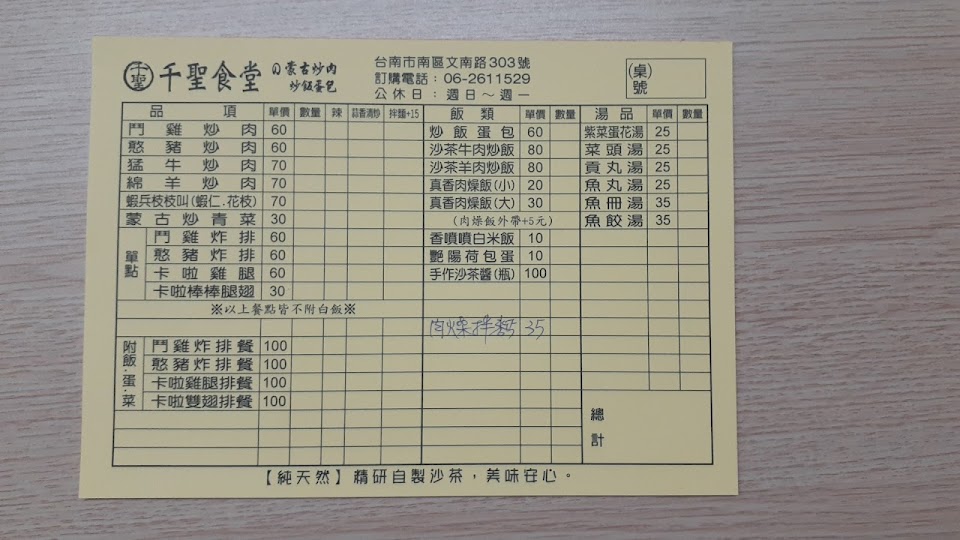 千聖 千聖食堂 の蒙古炒肉 炒飯蛋包
台南市南區文南路303號
訂購電話：06-2611529
公休日：週日～週一
(桌)號
品項 單價 數量 辣 蒜香清炒 拌麵+15 飯類 單價 數量 湯品 單價 數量
鬥雞炒肉 60 炒飯蛋包 60 紫菜蛋花湯 25
憨豬炒肉 60 沙茶牛肉炒飯 80 菜頭湯 25
猛牛炒肉 70 沙茶羊肉炒飯 80 貢丸湯 25
綿羊炒肉 70 真香肉燥飯(小) 20 魚丸湯 25
蝦兵枝枝叫(蝦仁.花枝) 70 真香肉燥飯(大) 30 魚冊湯 35
蒙古炒青菜 30 (肉燥飯外帶+5元) 魚餃湯 35
單點 鬥雞炸排 60 香噴噴白米飯 10
憨豬炸排 60 艷陽荷包蛋 10
卡啦雞腿 60 手作沙茶醬(瓶) 100
卡啦棒棒腿翅 30
※以上餐點皆不附白飯※
肉燥拌麵 35
附飯.蛋.菜 鬥雞炸排餐 100
憨豬炸排餐 100
卡啦雞腿排餐 100
卡啦雙翅排餐 100
總計
【純天然】精研自製沙茶，美味安心。